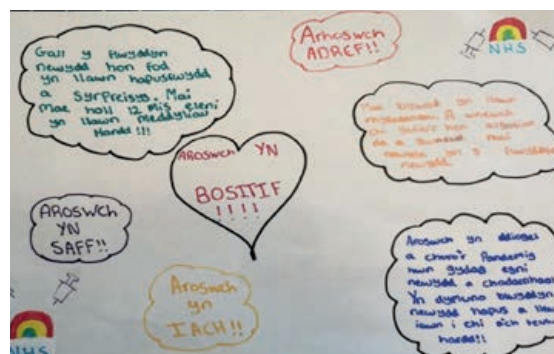 Gall y flwyddyn
newydd hon fod
yn llawn hapusrwydd
a syrpreisys. Mai
mae holl 12 mis eleni
yn llawn meddyliau
Hardd!!!
Arhoswch
ADREF!!
NHS
yn llawn
A wnewch
chi
da a
newydd yn y
newydd.
AROSWCH YN
BOSITIF
!!!!
AROSWCH
YN
SAFF!!
Aroswch
yn
IACH!!
Aroswch yn ddiogel
a churo'r Pandemig
hwn gydag egni
newydd a chadarnhaol
Yn dymuno blwyddyn
newydd hapus a llawn
iawn i chi a'ch teulu
hardd!!
NHS